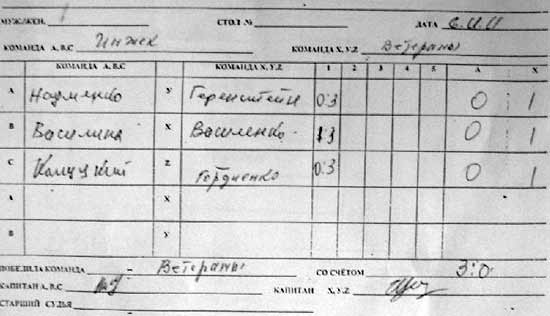 МУЖ/ЖЕН. СТОЛ № ДАТА 6.11.11
КОМАНДА А,В,С Инжек КОМАНДА X,Y,Z Ветераны
КОМАНДА А,В,С КОМАНДА X,Y,Z 1 2 3 4 5 А X
А Науменко У Геренштейн 0:3 0 : 1
В Василина X Василенко 1:3 0 1
С Z Гордиенко 0:3 0 1
А X
В У
ПОБЕДИЛА КОМАНДА - Ветераны СО СЧЁТОМ 3:0
КАПИТАН А,В,С КАПИТАН X,Y,Z
СТАРШИЙ СУДЬЯ